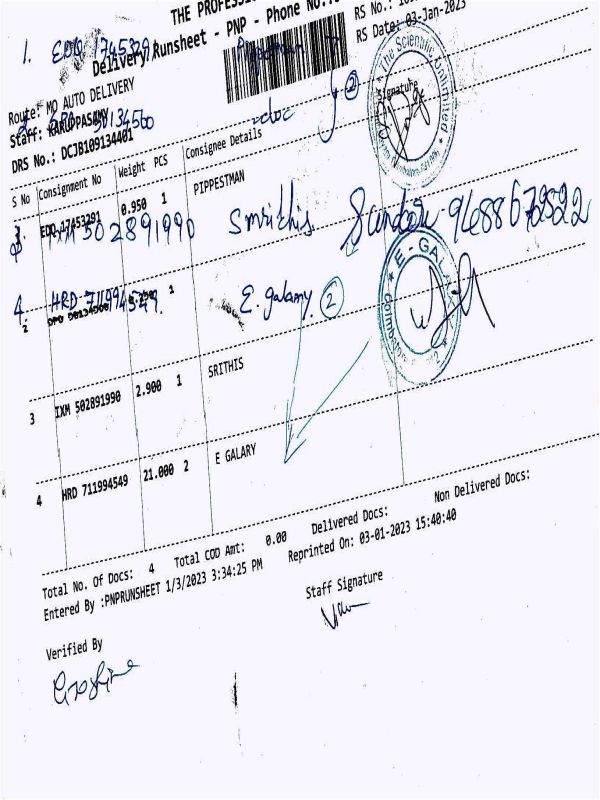 THE PROFESSIO
Delivery Runsheet - PNP - Phone No.:
RS No.:
RS Date: 03-Jan-2023
1. EDQ 17453291
Route: MO AUTO DELIVERY
Staff: KARUPPASAMY
50134500
2 doc
2
Signature
DRS No.: DCJB109134401
The Scientific
S No Consignment No Weight PCS Consignee Details
EDQ 17453291 0.950 1 PIPPESTMAN
502891990 Smrithis Sundari 9488672522
4. HRD 711994549 E. galamy 2
E - GALA
Coimba
2 1
3 IXM 502891990 2.900 1 SRITHIS
4 HRD 711994549 21.000 2 E GALARY
Total No. Of Docs: 4 Total COD Amt: 0.00 Delivered Docs: Non Delivered Docs:
Entered By :PNPRUNSHEET 1/3/2023 3:34:25 PM Reprinted On: 03-01-2023 15:40:40
Staff Signature
Verified By